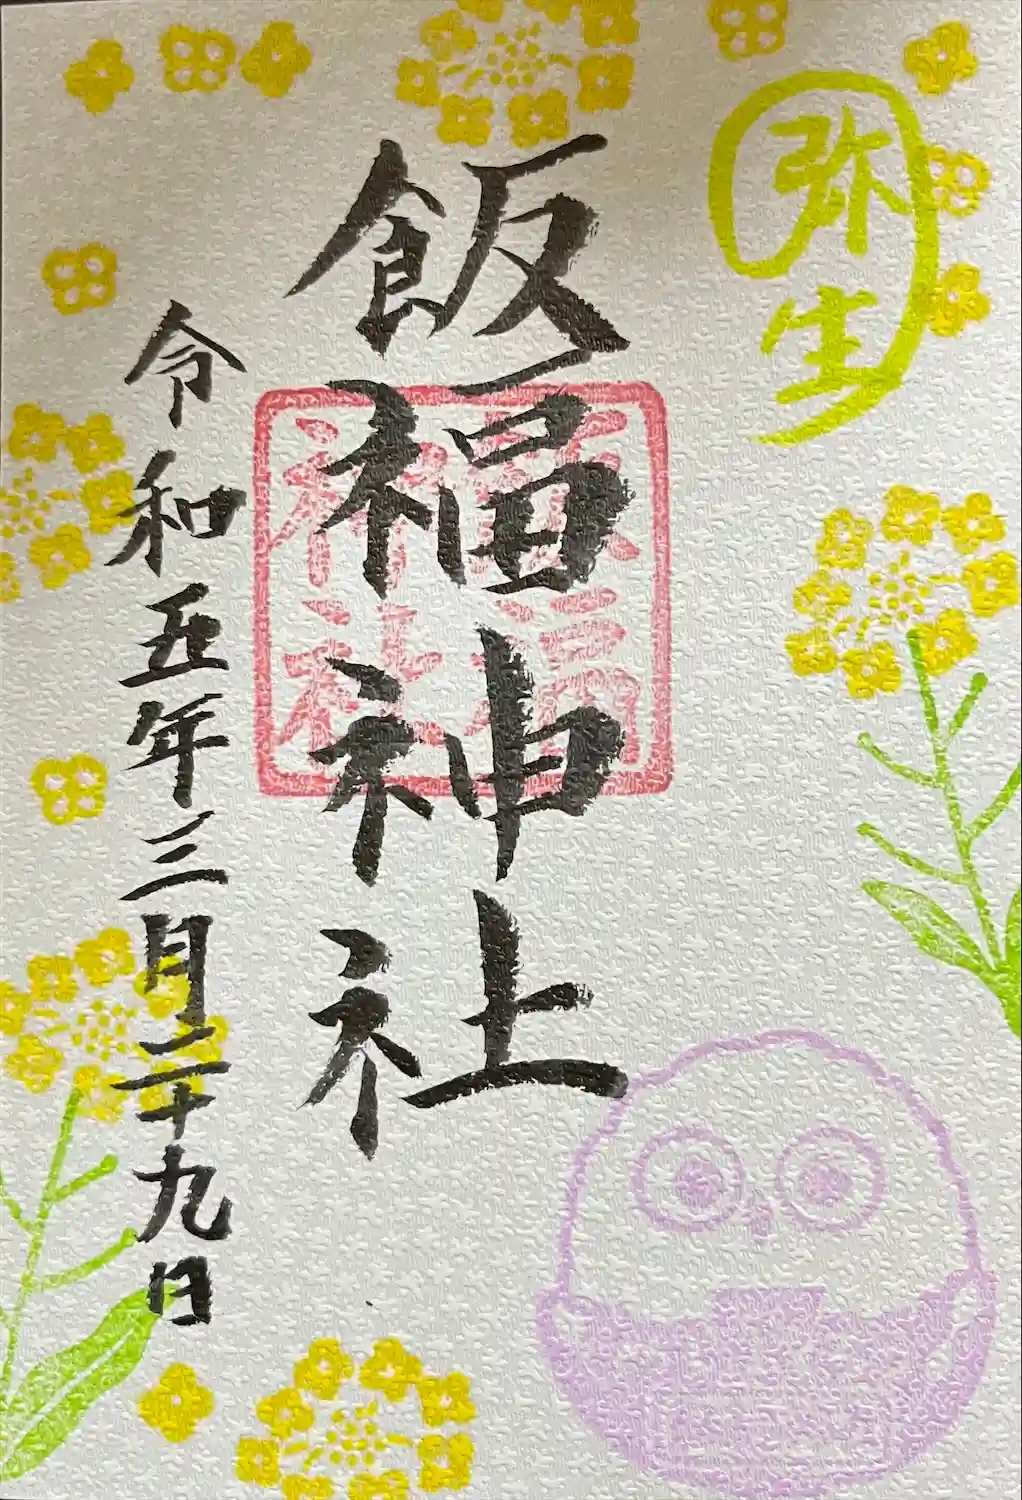 弥生
飯福神社
飯福
神社
令和五年三月二十九日